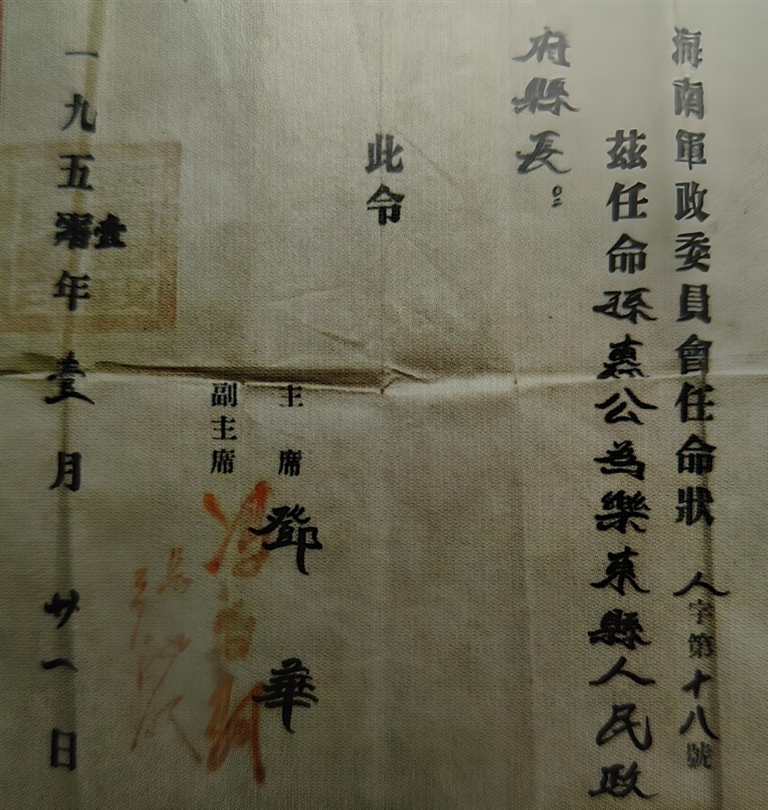 海南軍政委員會任命狀 人字第十八號
茲任命孫惠公為樂東縣人民政
府縣長。
此令
主席 鄧華
副主席 馮白駒
一九五壹年壹月廿一日